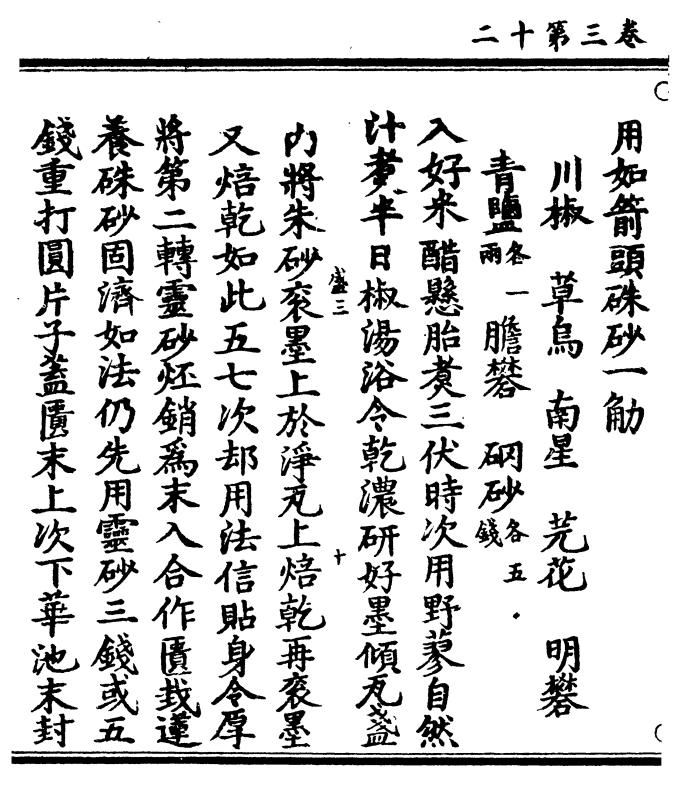 二十第三卷
用如箭頭硃砂一觔
川椒 草烏 南星 芫花 明礬
青鹽各一兩 膽礬 硇砂各五錢
入好米醋懸胎煑三伏時次用野蓼自然
汁煑半日椒湯浴令乾濃研好墨傾瓦盞
盛三
十
内將朱砂衮墨上於淨瓦上焙乾再衮墨
又焙乾如此五七次却用法信貼身令厚
將第二轉靈砂烀銷爲末入合作匱栽蓮
養硃砂固濟如法仍先用靈砂三錢或五
錢重打圓片子蓋匱末上次下華池末封